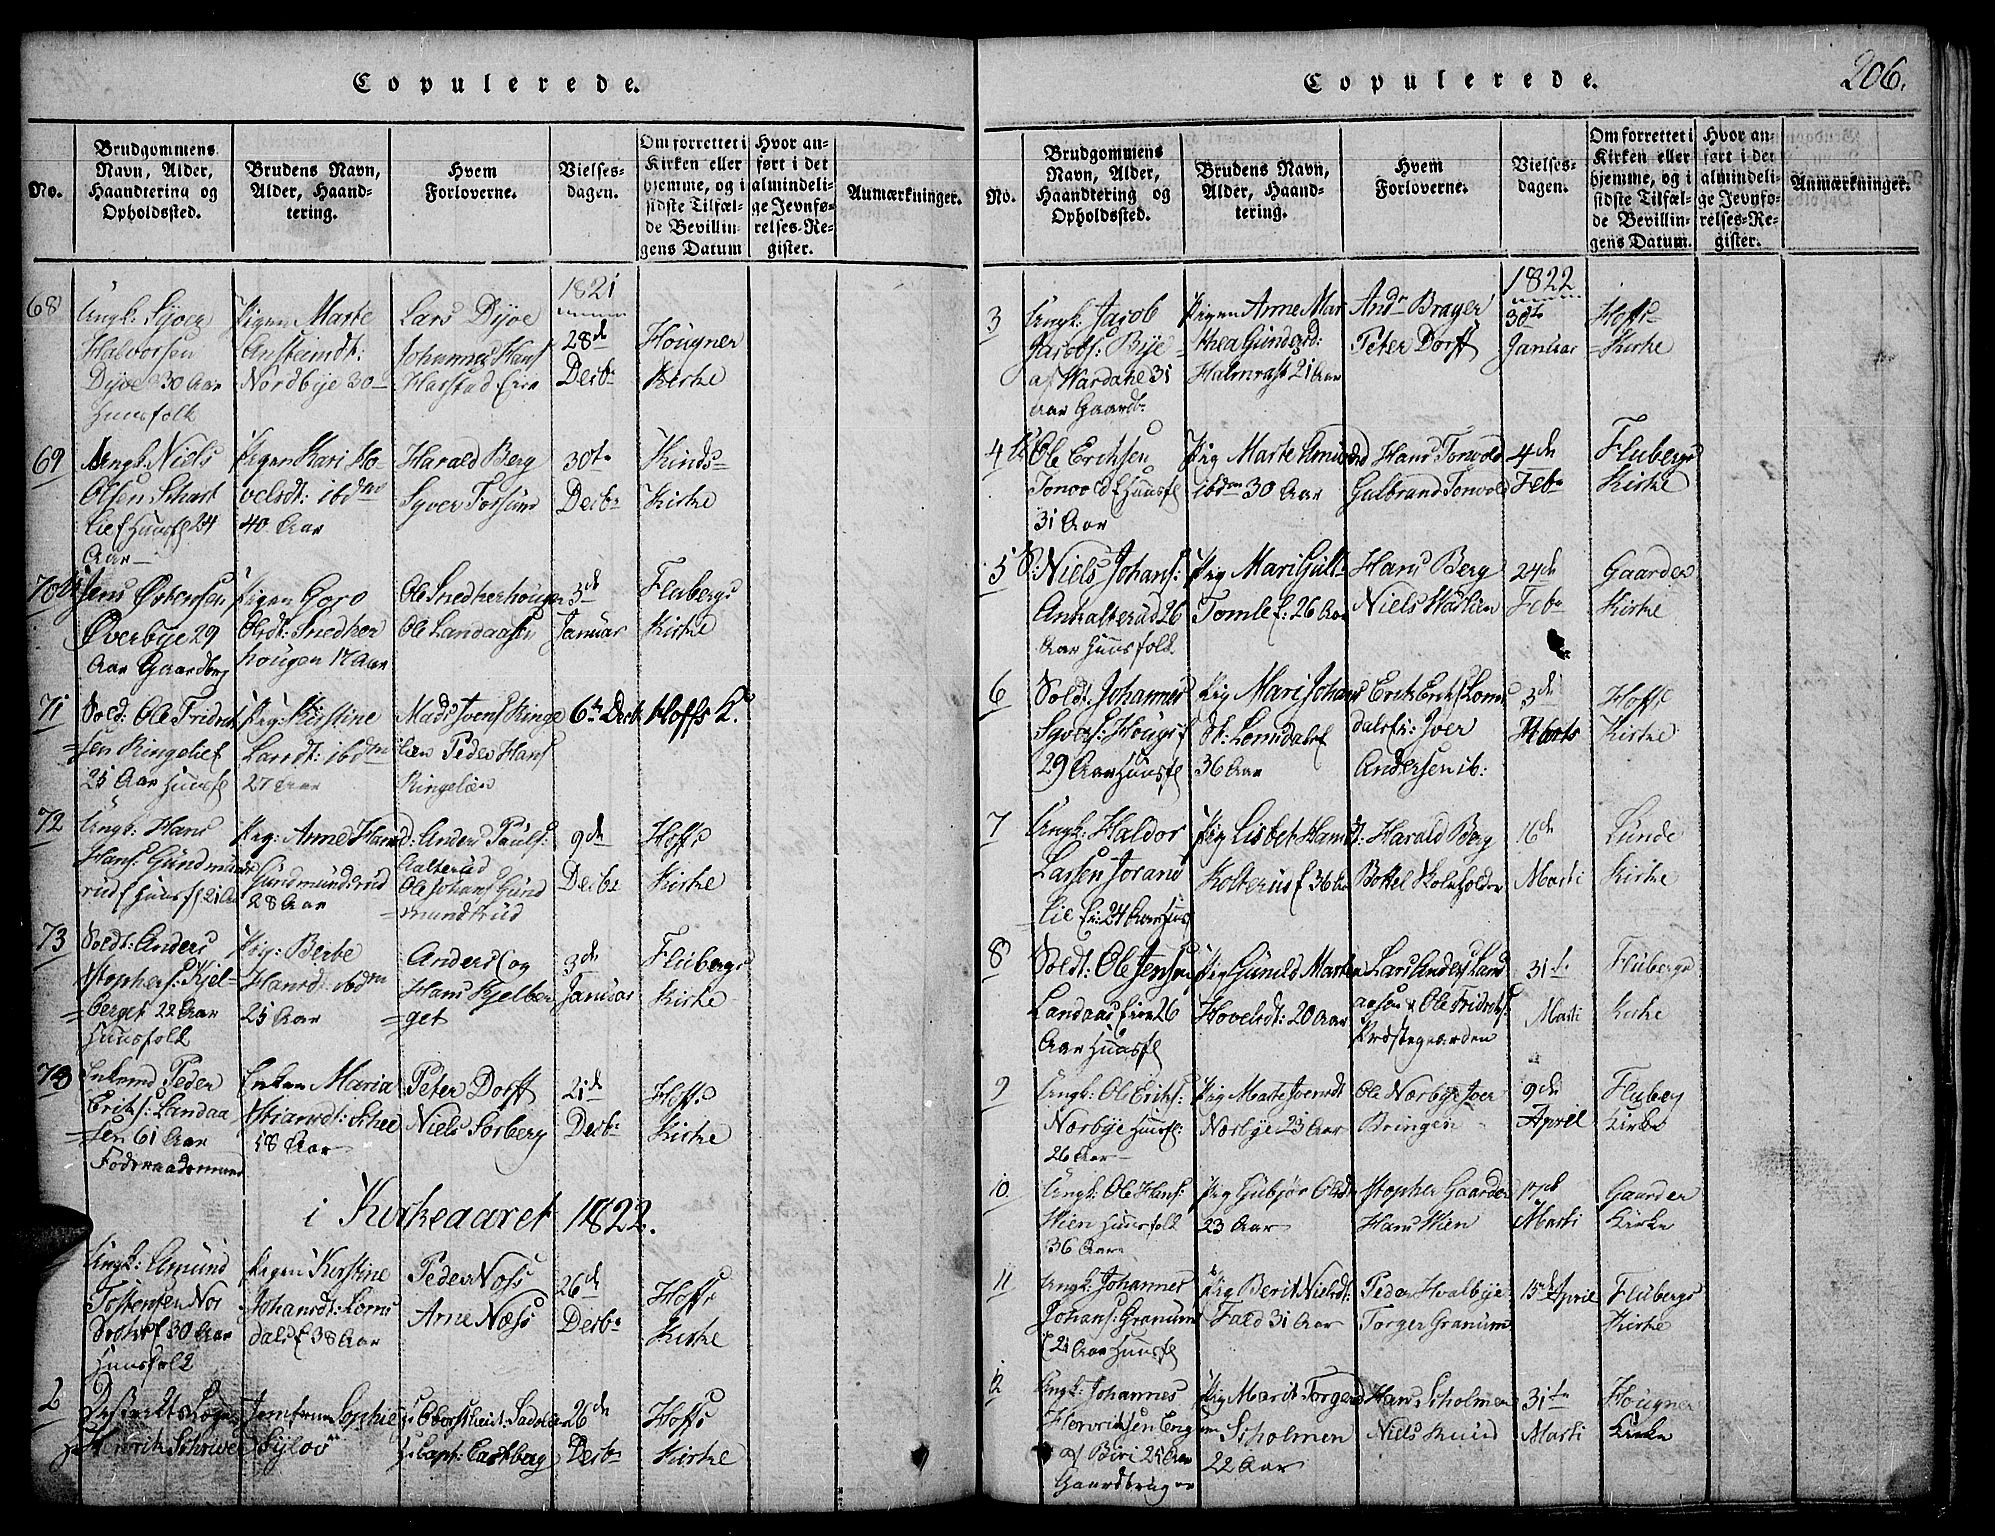 Copulerede.
No.
Brudgommens
Navn, Alder,
Haandtering og
Opholdssted.
Brudens Navn,
Alder, Haand-
tering.
Hvem
Forloverne.
Vielses-
dagen.
Om forrettet i
Kirken eller
hjemme, og i
sidste Tilfæl-
de Bevillin-
gens Datum
Hvor an-
ført i det
almindeli-
ge Jevnfø-
relses-Re-
gister.
Anmærkninger.
68
Ungk: Syver
Halvorsen
Dyve 30 Aar
Huusfolk
Pigen Marte
Nordbye 30
Lars Dyve
Johannes Hans
Harstad Eie
1821
28de
Decbr
Hougner
Kirke
69
Ungk: Niels
Olsen Schart
lie f Huusf 24
Aar
Pigen Kari Ho-
velsdt: ibdm
40 Aar
Harald Berg
Syver Fossund
30te
Decbr
Kinds-
Kirke
70
Jens Østensen
Øverbye 29
Aar Gaardbrg
Pigen Goro
Olsdt: Snedker
hougen 17 Aar
Ole Snedkerhougen
Ole Landaasen
3de
Januar
Flubergs
Kirke
71
Sold: Ole Fridrik
sen Ringelief
25 Aar Huusf
Pig: Kirstine
Larsdt: ibdm
27 Aar
Mads Ivers Ringe
lien Peder Hans
Ringelien
6te Decbr
Hoffs K.
72
Ungk: Hans
Hans: Gundmunds
rud f Huusf 21 Aar
Pig: Anne Hansd:
Gundmundsrud
28 Aar
Anders Pauls:
Aalterud
Ole Johans Gund
mundsrud
9de
Decbr
Hoffs
Kirke
73
Soldt: Anders
Stophers: Kjel-
berget 22 Aar
Huusfolk
Pig: Berte
Hansd ibdm
25 Aar
Anders og
Hans Kjelber
get
3de
Januar
Flubergs
Kirke
73
Enkemd Peder
Eriks: Landaa
sen 61 Aar
Foderaadsmand
Enken Maria
58 Aar
Peter Dorff
Niels Sorberg
21de
Decbr
Hoffs
Kirke
i Kirkeaaret 1822.
Ungk: Amund
Tostensen Nor
30 Aar
Huusfolk
Pigen Kirstine
Johansdt: Loms
dalsf 38 Aar
Peder Næss
Arne Næss
26de
Decbr
Hoffs
Kirke
2
Destrikts Læge
Henrik Schriver
Jomfrue Sophie
Sylov
Oberstleut: Sadolin
Capt: Castberg
26de
Decbr
Hoffs
Kirke
Copulerede.
206.
No.
Brudgommens
Navn, Alder,
Haandtering og
Opholdssted.
Brudens Navn,
Alder, Haand-
tering.
Hvem
Forloverne.
Vielses-
dagen.
Om forrettet i
Kirken eller
hjemme, og i
sidste Tilfæl-
de Bevillin-
gens Datum.
Hvor an-
ført i det
almindeli-
ge Jevnfø-
relses-Re-
gister.
Anmærkninger.
3
Ungk: Jacob
Jacobs: Bye
af Wardahl 31
Aar Gaardbr
Pigen Anne Mar
thea Gundersd:
Halmrast 21 Aar
Andr Brager
Peter Dorff
1822
30te
Januar
Hoffs
Kirke
4
Ole Erichsen
Tonvold f Huusf
31 Aar
Pig Marte Amunds
ibdm 30 Aar
Hans Tonvold
Gulbrand Tonvold
4de
Febr
Flubergs
Kirke
5
S: Niels Johans:
Ankalterud 26
Aar Huusfolk
Pig Mari Gulb
Tomle f: 26 Aar
Hans Berg
Niels Warlien
24de
Febr
Gaarder
Kirke
6
Soldt: Johannes
Syvers: Hougs f
29 Aar Huusf
Pig Mari Johans
dt: Lomsdals f
36 Aar
Erik Eriks Loms
dals f: Iver
Andersen ib:
3die
Marts
Hoffs
Kirke
7
Ungk: Haldor
Larsen Jorand
lie Ei: 24 Aar Huus
Pig Lisbet Hansdt:
Kolterud f 36 Aar
Harald Berg
Bottel Kolsholdr
16de
Marti
Lunde
Kirke
8
Soldt: Ole Jensen
Landaas Eie 26
Aar Huusf
Pig Gunild Marte
Hovelsdt: 20 Aar
Lars Anders Land
aasen & Ole Fridriks:
Præstegaarden
31te
Marti
Flubergs
Kirke
9
Ungk: Ole Erichs:
Norbye Huusf:
26 Aar
Pig Marte Iversdt
Norbye 23 Aar
Ole Norbye Iver
Bringen
9de
April
Fluberg
Kirke
10
Ungk: Ole Hans:
Wien Huusfolk
36 Aar
Pig Gubjør Olsdr
23 Aar
Stopher Gaarder
Hans Wien
17de
Marti
Gaarder
Kirke
11
Ungk: Johannes
Johans: Granum
f 21 Aar Huusf
Pig Berit Nielsdt:
Fald 31 Aar
Peder Hvalbye
Torger Granum
15de April
Flubergs
Kirke
12
Ungk: Johannes
Henriksen Eng
af Biri 25 Aar
Gaardbruger
Pig Marit Torgersd
Scholmen
22 Aar
Hans Scholmen
Niels Skind
31te
Marti
Hougner
Kirke